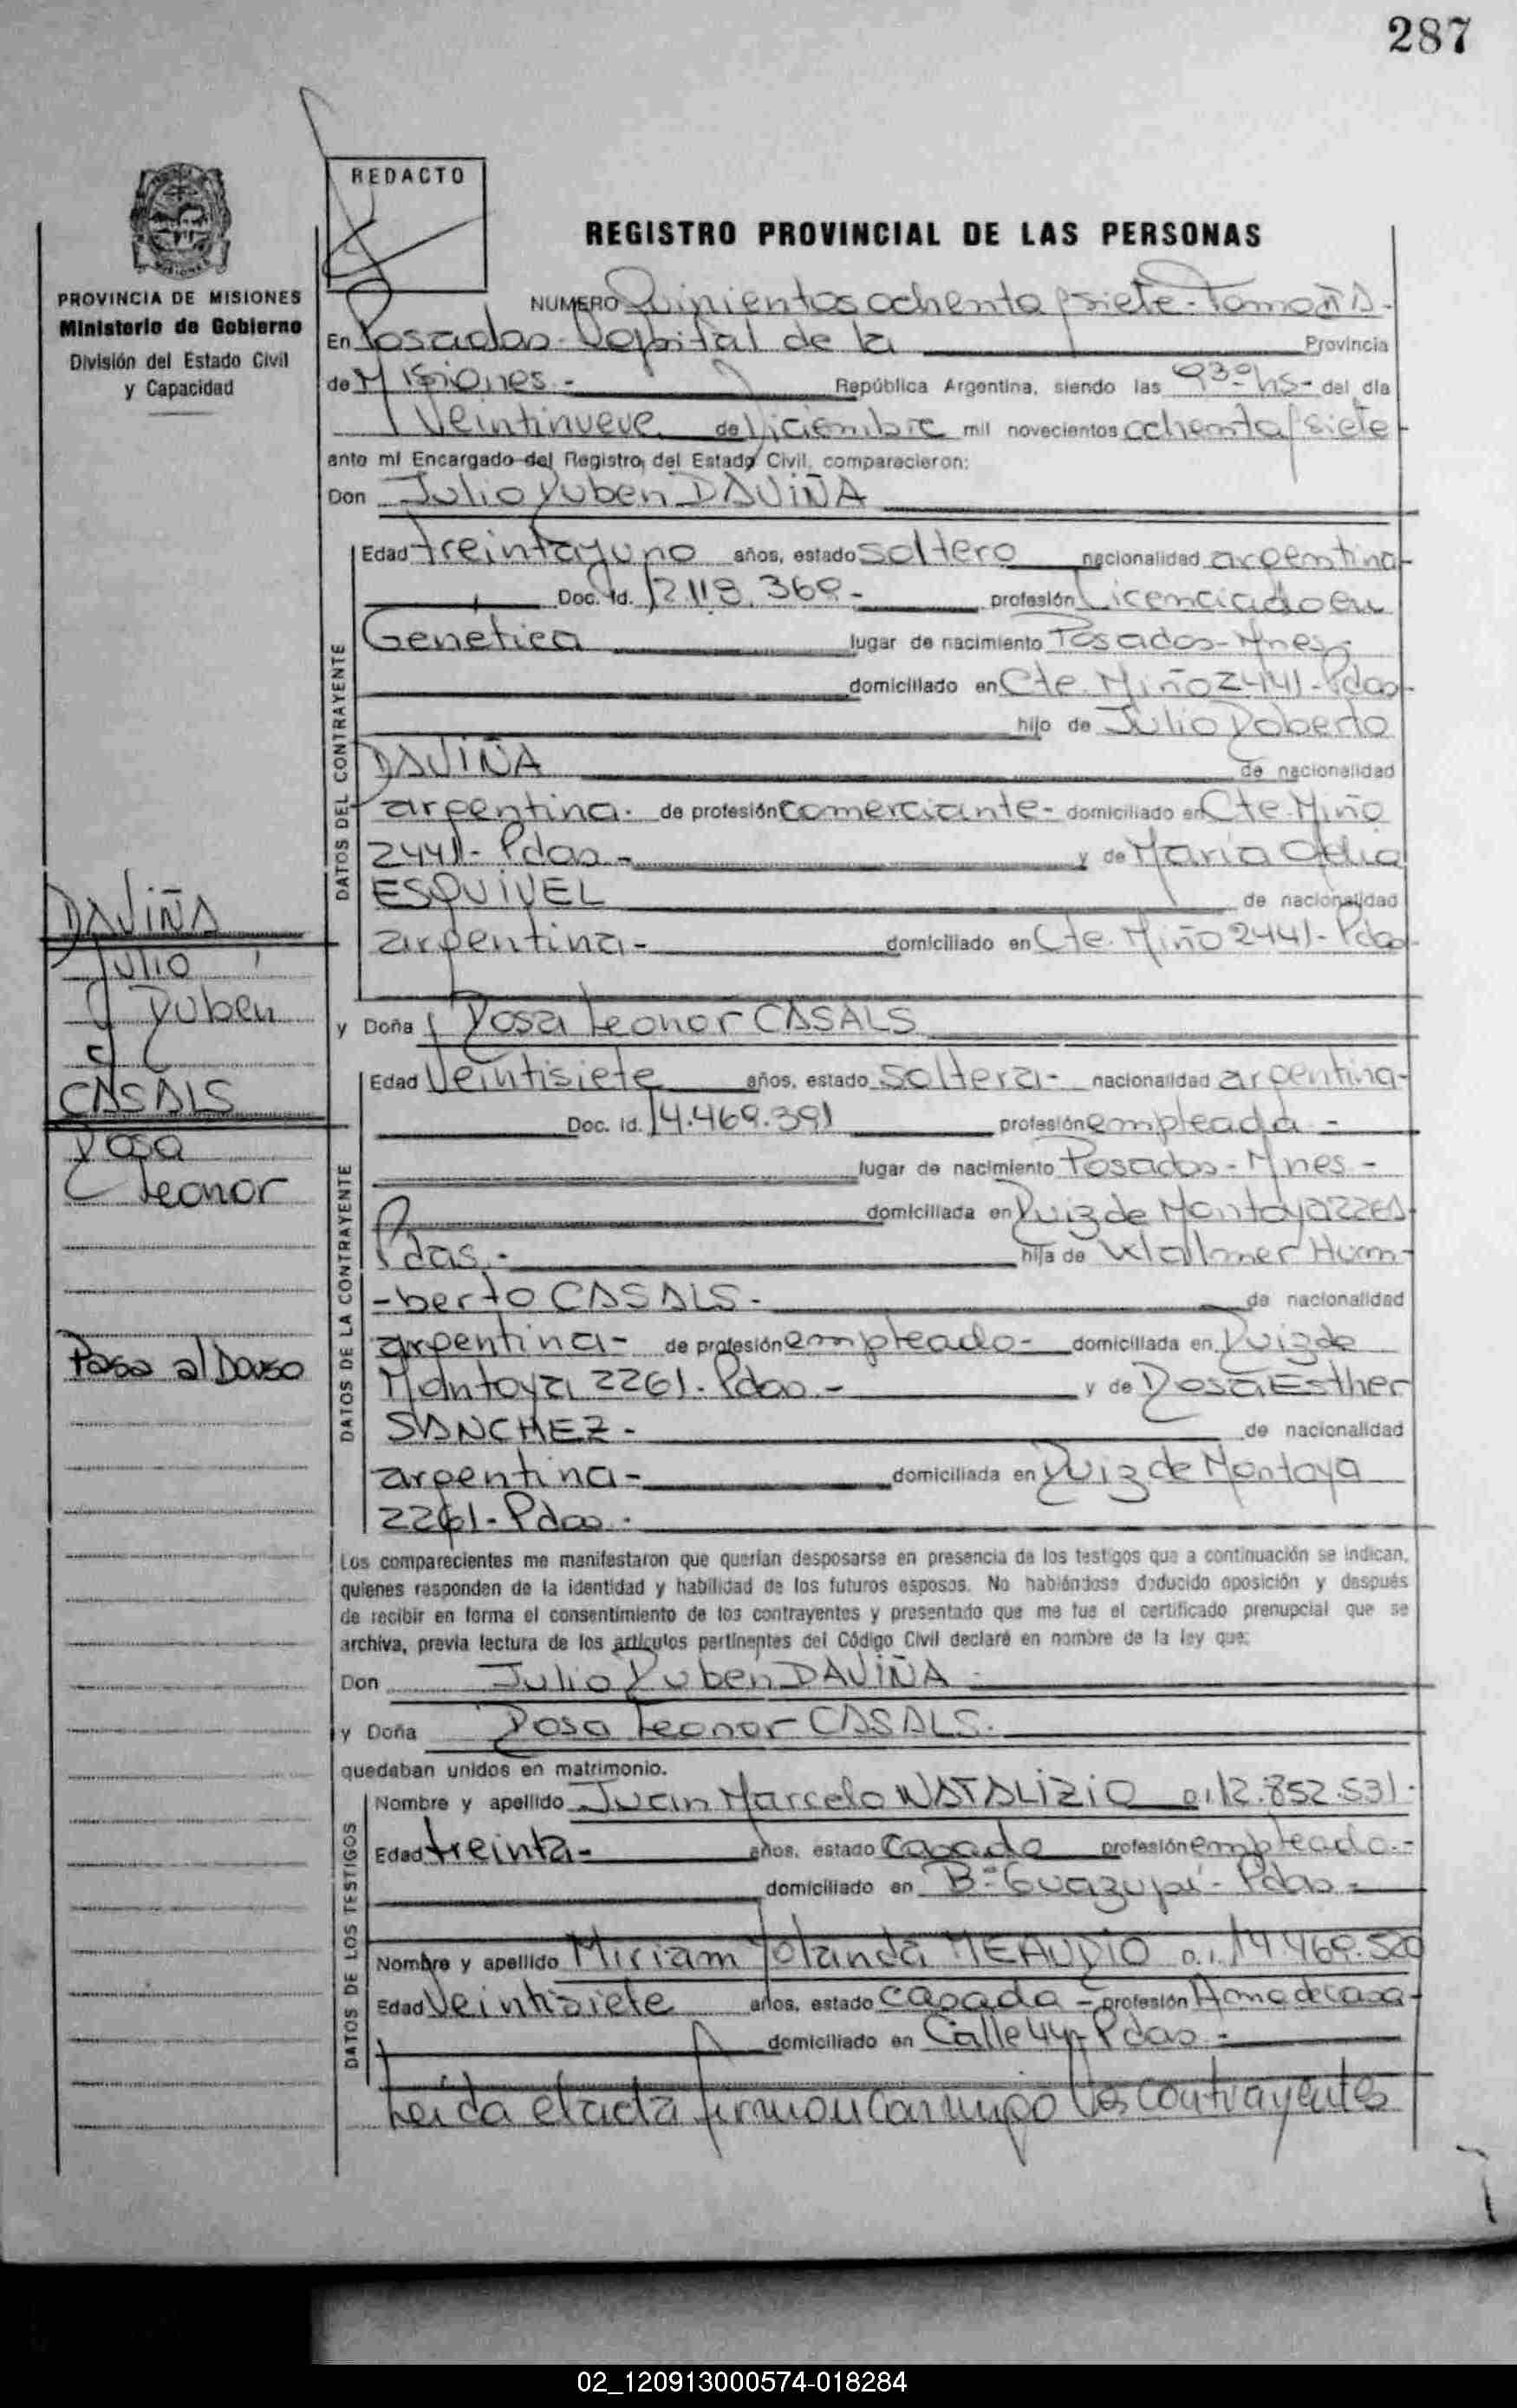 287
REDACTO
REGISTRO PROVINCIAL DE LAS PERSONAS
PROVINCIA DE MISIONES
Ministerio de Gobierno
División del Estado Civil
y Capacidad
NUMERO Quinientos ochenta y siete - Tomo
En Posadas - Capital de la Provincia
de Misiones.- República Argentina, siendo las 9 30 hs- del día
Veintinueve de Diciembre mil novecientos ochenta y siete
ante mí Encargado del Registro del Estado Civil, comparecieron:
Don Julio Ruben DAVIÑA
DATOS DEL CONTRAYENTE
Edad treinta y uno años, estado soltero nacionalidad argentina-
Doc. Id. 12.118.369.- profesión Licenciado en
Genetica lugar de nacimiento Posadas-Mnes-
domiciliado en Cte. Miño 2441-Pdas-
hijo de Julio Roberto
DAVIÑA de nacionalidad
argentina. de profesión comerciante- domiciliado en Cte. Miño
2441- Pdas- y de Maria
ESQUIVEL de nacionalidad
argentina- domiciliado en Cte. Miño 2441- Pdas-
DAVIÑA
Julio
Ruben
y
CASALS
Rosa
Leonor
Pasa al Dorso
y Doña Rosa Leonor CASALS
DATOS DE LA CONTRAYENTE
Edad Veintisiete años, estado soltera- nacionalidad argentina-
Doc. Id. 14.469.391 profesión empleada-
lugar de nacimiento Posadas-Mnes-
domiciliada en Ruiz de Montoya 2261
Pdas.- hija de Walmer Hum-
-berto CASALS- de nacionalidad
argentina- de profesión empleado- domiciliada en Ruiz de
Montoya 2261- Pdas- y de Rosa Esther
SANCHEZ- de nacionalidad
argentina- domiciliada en Ruiz de Montoya
2261- Pdas.
Los comparecientes me manifestaron que querían desposarse en presencia de los testigos que a continuación se indican,
quienes responden de la identidad y habilidad de los futuros esposos. No habiéndose deducido oposición y después
de recibir en forma el consentimiento de los contrayentes y presentado que me fue el certificado prenupcial que se
archiva, previa lectura de los artículos pertinentes del Código Civil declaré en nombre de la ley que:
Don Julio Ruben DAVIÑA
y Doña Rosa Leonor CASALS.
quedaban unidos en matrimonio.
DATOS DE LOS TESTIGOS
Nombre y apellido Juan Marcelo NATALIZIO 12.852.531.
Edad treinta- años, estado casado profesión empleado.-
domiciliado en Bº Guazupi- Pdas-
Nombre y apellido Miriam Yolanda 14.469.520
Edad Veintisiete años, estado casada- profesión Ama de casa-
domiciliado en Calle 44- Pdas-
Leida el acta firman conmigo los contrayentes
02_120913000574-018284